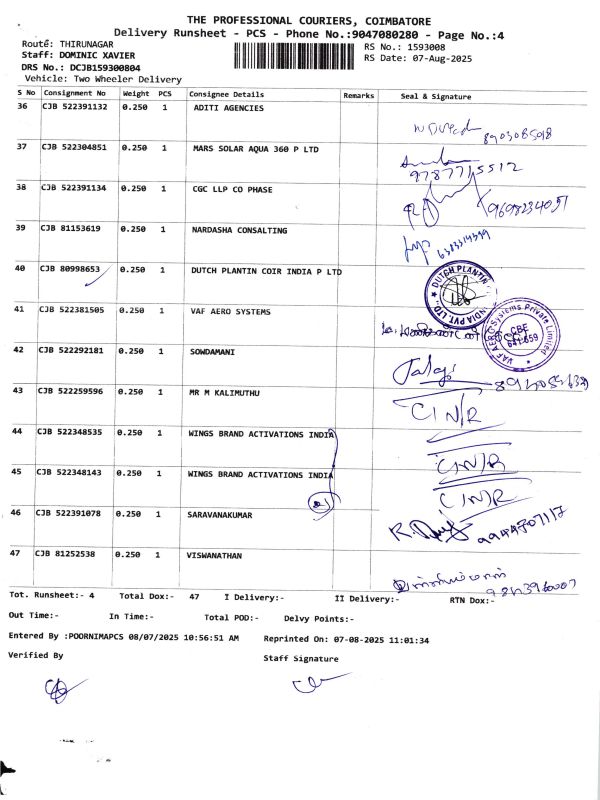 THE PROFESSIONAL COURIERS, COIMBATORE
Delivery Runsheet - PCS - Phone No.:9047080280 - Page No.:4
Route: THIRUNAGAR RS No.: 1593008
Staff: DOMINIC XAVIER RS Date: 07-Aug-2025
DRS No.: DCJB159300804
Vehicle: Two Wheeler Delivery
S No Consignment No Weight PCS Consignee Details Remarks Seal & Signature
36 CJB 522391132 0.250 1 ADITI AGENCIES
37 CJB 522304851 0.250 1 MARS SOLAR AQUA 360 P LTD
9787715512
38 CJB 522391134 0.250 1 CGC LLP CO PHASE
9698234051
39 CJB 81153619 0.250 1 NARDASHA CONSALTING
40 CJB 80998653 0.250 1 DUTCH PLANTIN COIR INDIA P LTD
DUTCH PLANTIN INDIA PVT. LTD.
41 CJB 522381505 0.250 1 VAF AERO SYSTEMS
VAF AERO Systems Private Limited
CBE
641 659
42 CJB 522292181 0.250 1 SOWDAMANI
43 CJB 522259596 1 0.250 MR M KALIMUTHU
C I N/R
44 CJB 522348535 0.250 1 WINGS BRAND ACTIVATIONS INDIA
C I N/R
45 CJB 522348143 0.250 1 WINGS BRAND ACTIVATIONS INDIA
C I N/R
46 CJB 522391078 0.250 1 SARAVANAKUMAR
9944707117
47 CJB 81252538 0.250 1 VISWANATHAN
Tot. Runsheet:- 4 Total Dox:- 47 I Delivery:- II Delivery:- RTN Dox:-
Out Time:- In Time:- Total POD:- Delvy Points:-
Entered By :POORNIMAPCS 08/07/2025 10:56:51 AM Reprinted On: 07-08-2025 11:01:34
Verified By Staff Signature